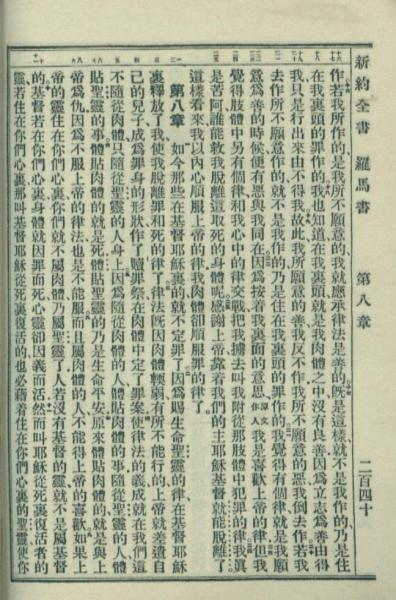 新約全書 羅馬書 第八章 二百四十
作若我所作的是我所不願意的我就應承律法是善的旣是這樣就不是我作的乃是住
在我裏頭的罪作的我也知道在我裏頭就是我肉體之中沒有良善因爲立志爲善由得
我只是行出來由不得我故此我所願意的善我反不作我所不願意的惡我倒去作若我
去作所不願意作的就不是我作的乃是住在我裏頭的罪作的我覺得有個律就是我願
意爲善的時候便有惡與我同在因爲按着我裏面的意思原文作人我是喜歡上帝的律但我
覺得肢體中另有個律和我心中的律交戰把我擄去叫我附從那肢體中犯罪的律我眞
是苦阿誰能救我脫離這取死的身體呢感謝上帝靠着我們的主耶穌基督就能脫離了
這樣看來我以內心順服上帝的律我肉體卻順服罪的律了
第八章 如今那些在基督耶穌裏的就不定罪了因爲賜生命聖靈的律在基督耶穌
裏釋放了我使我脫離罪和死的律了律法旣因肉體輭弱有所不能行的上帝就差遣自
己的兒子成爲罪身的形狀作了贖罪祭在肉體中定了罪案使律法的義成就在我們這
不隨從肉體只隨從聖靈的人身上因爲隨從肉體的人體貼肉體的事隨從聖靈的人體
貼聖靈的事體貼肉體的就是死體貼聖靈的乃是生命平安原來體貼肉體的就是與上
帝爲仇因爲不服上帝的律法也是不能服而且屬肉體的人不能得上帝的喜歡如果上
帝的靈住在你們心裏你們就不屬肉體乃屬聖靈了人若沒有基督的靈就不是屬基督
的基督若在你們心裏身體就因罪而死心靈卻因義而活然而叫耶穌從死裏復活者的
靈若住在你們心裏那叫基督耶穌從死裏復活的也必藉着住在你們心裏的聖靈使你